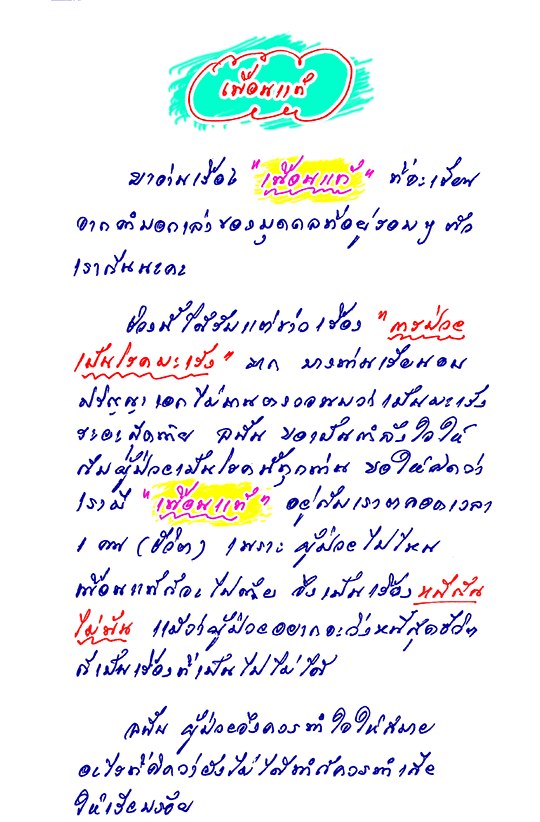 เพื่อนแท้
มาอ่านเรื่อง "เพื่อนแท้" ที่จะเขียน
จากคำบอกเล่าของบุคคลที่อยู่รอบๆ ตัว
เรากันนะคะ
ช่วงนี้ได้รับแต่ข่าวเรื่อง "การป่วย
เป็นโรคมะเร็ง" มาก บางท่านเรียนจบ
ปริญญาเอกไม่นานตรวจพบว่าเป็นมะเร็ง
ระยะสุดท้าย ฉะนั้น ขอเป็นกำลังใจให้
กับผู้ป่วยเป็นโรคนี้ทุกท่าน ขอให้คิดว่า
เรามี "เพื่อนแท้" อยู่กับเราตลอดเวลา
1 คน (ชีวิต) เพราะ ผู้ป่วยไปไหน
เพื่อนแท้ก็จะไปด้วย จึงเป็นเรื่องหนีกัน
ไม่พ้น แม้ว่าผู้ป่วยอยากจะวิ่งหนีสุดชีวิต
ก็เป็นเรื่องที่เป็นไปไม่ได้
ฉะนั้น ผู้ป่วยจึงควรทำใจให้สบาย
อะไรที่คิดว่ายังไม่ได้ทำก็ควรทำเสีย
ให้เรียบร้อย